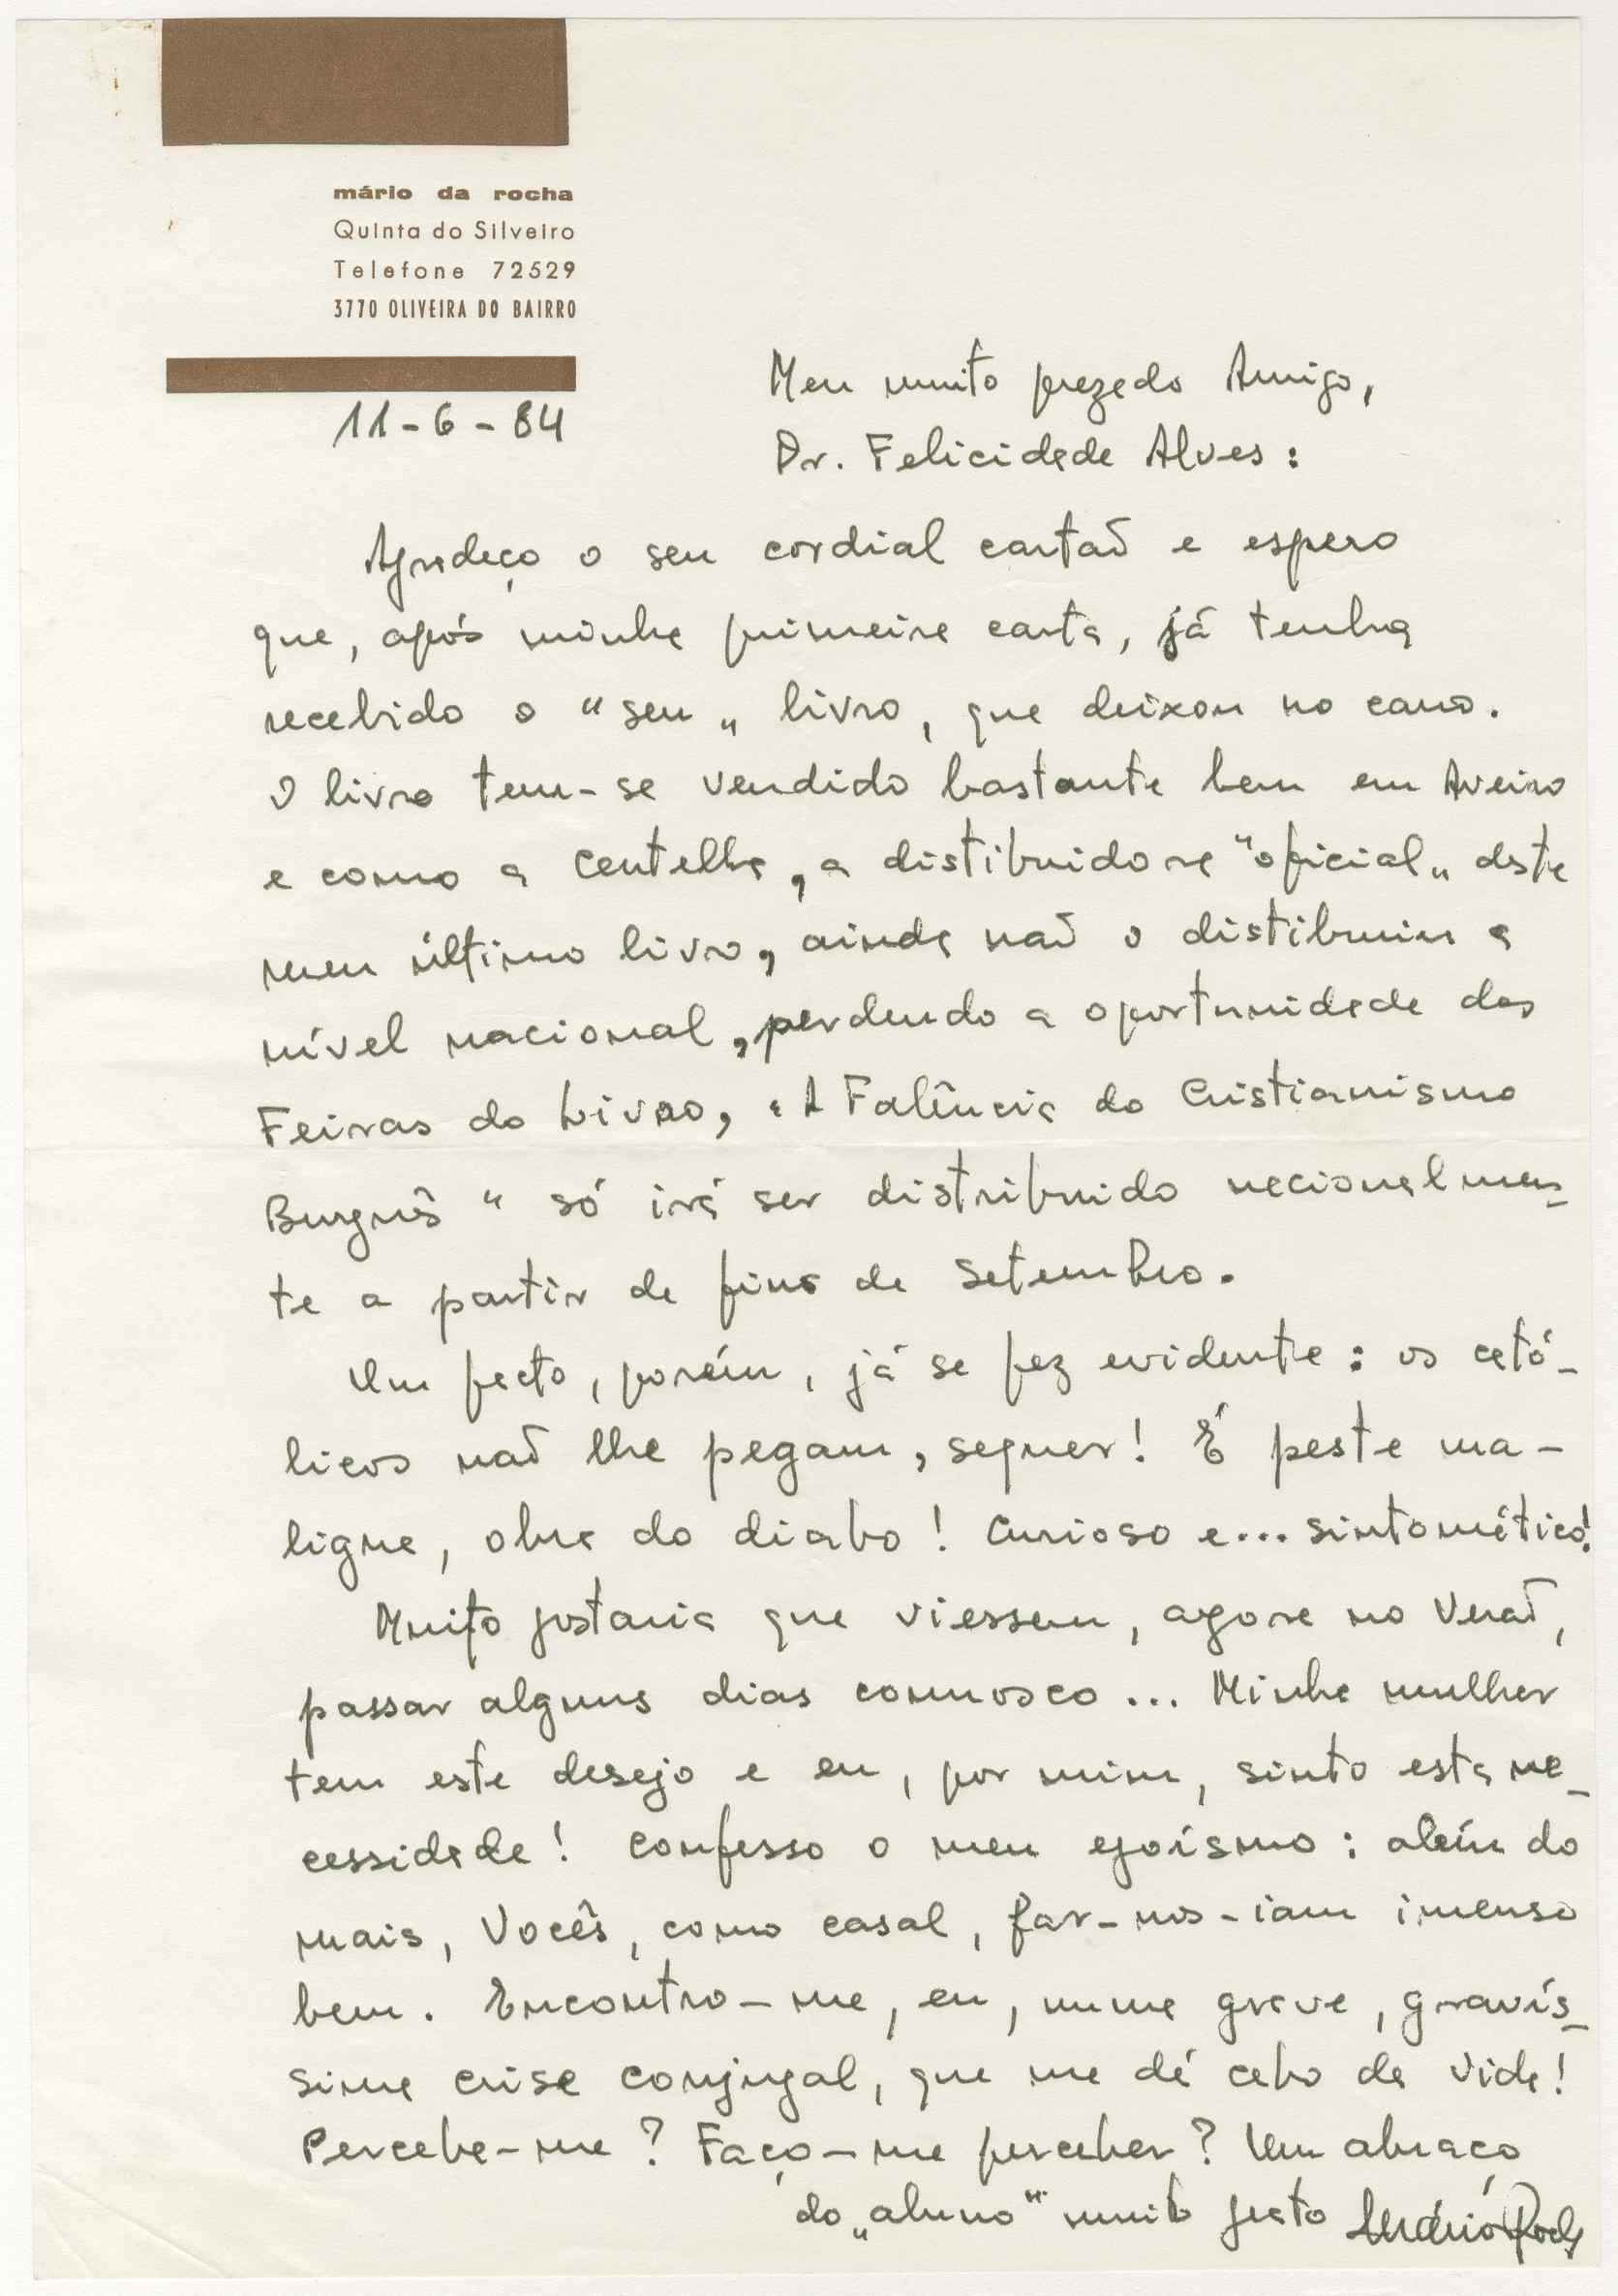 mário da rocha
Quinta do Silveiro
Telefone 72529
3770 OLIVEIRA DO BAIRRO
11-6-84
Meu muito prezado Amigo,
Dr. Felicidade Alves:
Agradeço o seu cordial cartão e espero
que, após minha primeira carta, já tenha
recebido o "seu" livro, que deixou no carro.
O livro tem-se vendido bastante bem em Aveiro
e como a Centelha, a distibuidora "oficial" deste
meu último livro, ainda não o distibuiu a
nível nacional, perdendo a oportunidade das
Feiras do Livro, "A Falência do Cristianismo
Burguês" só irá ser distribuido nacionalmen-
te a partir de fins de Setembro.
Um facto, porém, já se fez evidente: os cató-
licos não lhe pegam, sequer! É peste ma-
ligna, obra do diabo! Curioso e... sintomático!
Muito gostaria que viessem, agora no Verão,
passar alguns dias connosco... Minha mulher
tem este desejo e eu, por mim, sinto esta ne-
cessidade! Confesso o meu egoísmo: além do
mais, Vocês, como casal, far-nos-iam imenso
bem. Encontro-me, eu, numa grave, gravís-
sima crise conjugal, que me dá cabo da vida!
Percebe-me? Faço-me perceber? Um abraço
do "aluno" muito grato Mário Rocha